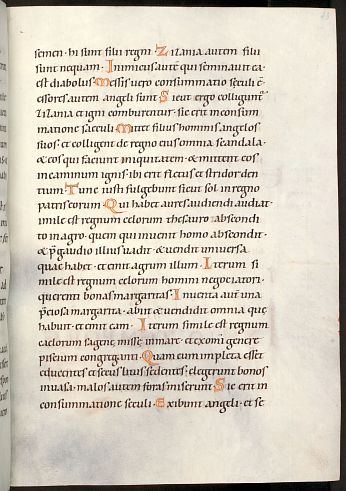 semen · hi sunt filii regni · Zizania autem filii
sunt nequam · Inimicus autē qui seminavit ea ·
est diabolus · Messis uero consummatio sęculi ē ·
Messores autem angeli sunt · Sicut ergo colligunt̄
zizania et igni comburentur · sic erit in consum
matione saeculi · Mittet filius hominis angelos
suos · et colligent de regno eius omnia scandala ·
& eos qui faciunt iniquitatem · & mittent eos
in caminum ignis · ibi erit fletus et stridor den
tium · Tunc iusti fulgebunt sicut sol in regno
patris eorum · Qui habet aures audiendi audiat ·
imile est regnum celorum thesauro abscondi
to in agro · quem qui inuenit homo abscondit ·
& p̄ gaudio illius uadit · & uendit uniuersa
quae habet · et emit agrum illum · Iterum si
mile est regnum celorum homini negociatori ·
querenti bonas margaritas · Inuenta aut̄ una
p̄ciosa margarita · abiit & uendidit omnia que
habuit · et emit eam · Iterum simile est regnum
caelorum sagene missę in mare · et ex omī genere
piscium congreganti · Quam cum impleta esset
educentes et secus litus sedentes · elegerunt bonos
in uasa · malos autem foras miserunt · Sic erit in
consummatione sęculi · Exibunt angeli · et se